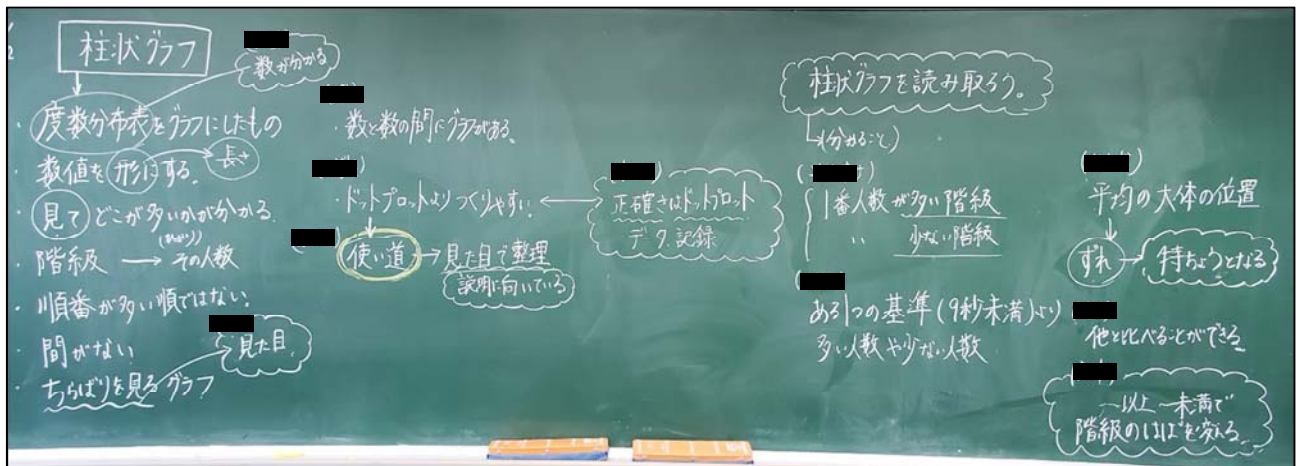 柱状グラフ
数が分かる
・度数分布表をグラフにしたもの
・数値を形にする。
長さ
・見てどこが多いかが分かる。
・階級 → その人数
・順番が多い順ではない。
・間がない
見た目
・ちらばりを見るグラフ
・数と数の間にグラフがある。
・ドットプロットよりつくりやすい。
使い道 → 見た目で整理
説明に向いている
正確さはドットプロット
データ記録
柱状グラフを読み取ろう。
(分かること)
1番人数が多い階級
〃 少ない階級
ある1つの基準(9秒未満)より
多い人数や少ない人数
平均の大体の位置
ずれ → 特ちょうとなる
他と比べることができる
〜以上〜未満で
階級のはばを変える。